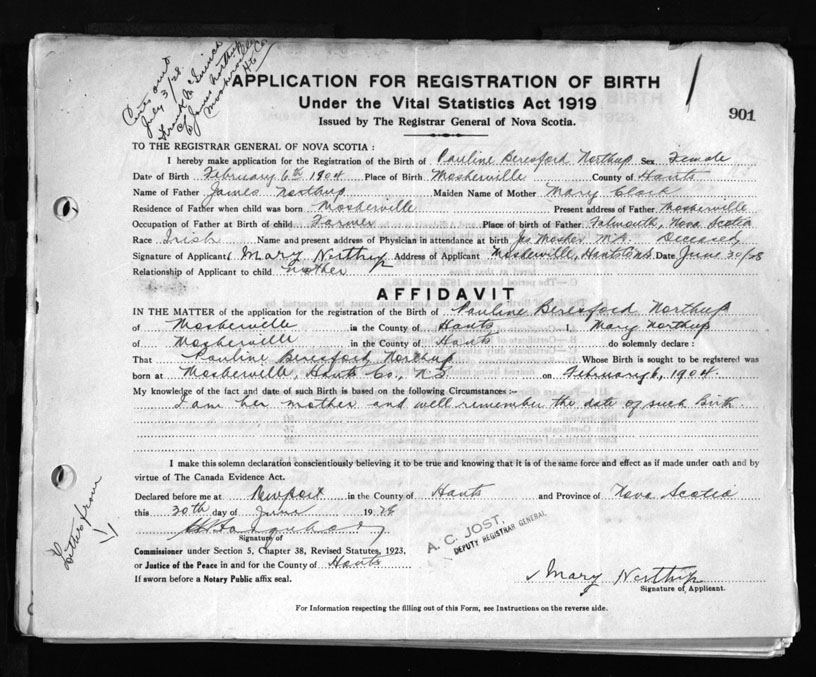 Certs out
July 3/28.
Frank M.
c/o James Northup
Mosherville
H Co
APPLICATION FOR REGISTRATION OF BIRTH
Under the Vital Statistics Act 1919
Issued by The Registrar General of Nova Scotia.
901
TO THE REGISTRAR GENERAL OF NOVA SCOTIA :
I hereby make application for the Registration of the Birth of Pauline Beresford Northup Sex Female
Date of Birth February 6th 1904 Place of Birth Mosherville County of Hants
Name of Father James Northup Maiden Name of Mother Mary Clark
Residence of Father when child was born Mosherville Present address of Father Mosherville
Occupation of Father at Birth of child Farmer Place of birth of Father Falmouth, Nova Scotia
Race Irish Name and present address of Physician in attendance at birth Jas Mosher M.D. Deceased
Signature of Applicant Mary Northup Address of Applicant Mosherville, Hants Co. N.S. Date June 30/28
Relationship of Applicant to child mother
AFFIDAVIT
IN THE MATTER of the application for the registration of the Birth of Pauline Beresford Northup
of Mosherville in the County of Hants I, Mary Northup
of Mosherville in the County of Hants do solemnly declare :
That Pauline Beresford Northup Whose Birth is sought to be registered was
born at Mosherville, Hants Co., N.S. on February 6, 1904.
My knowledge of the fact and date of such Birth is based on the following Circumstances :—
I am her mother and well remember the date of such birth.
I make this solemn declaration conscientiously believing it to be true and knowing that it is of the same force and effect as if made under oath and by
virtue of The Canada Evidence Act.
Declared before me at Newport in the County of Hants and Province of Nova Scotia
this 30th day of June 1928
Signature of
A. C. JOST,
DEPUTY REGISTRAR GENERAL
Commissioner under Section 5, Chapter 38, Revised Statutes, 1923,
or Justice of the Peace in and for the County of Hants
If sworn before a Notary Public affix seal.
Mary Northup
Signature of Applicant.
For Information respecting the filling out of this Form, see Instructions on the reverse side.
Letter from